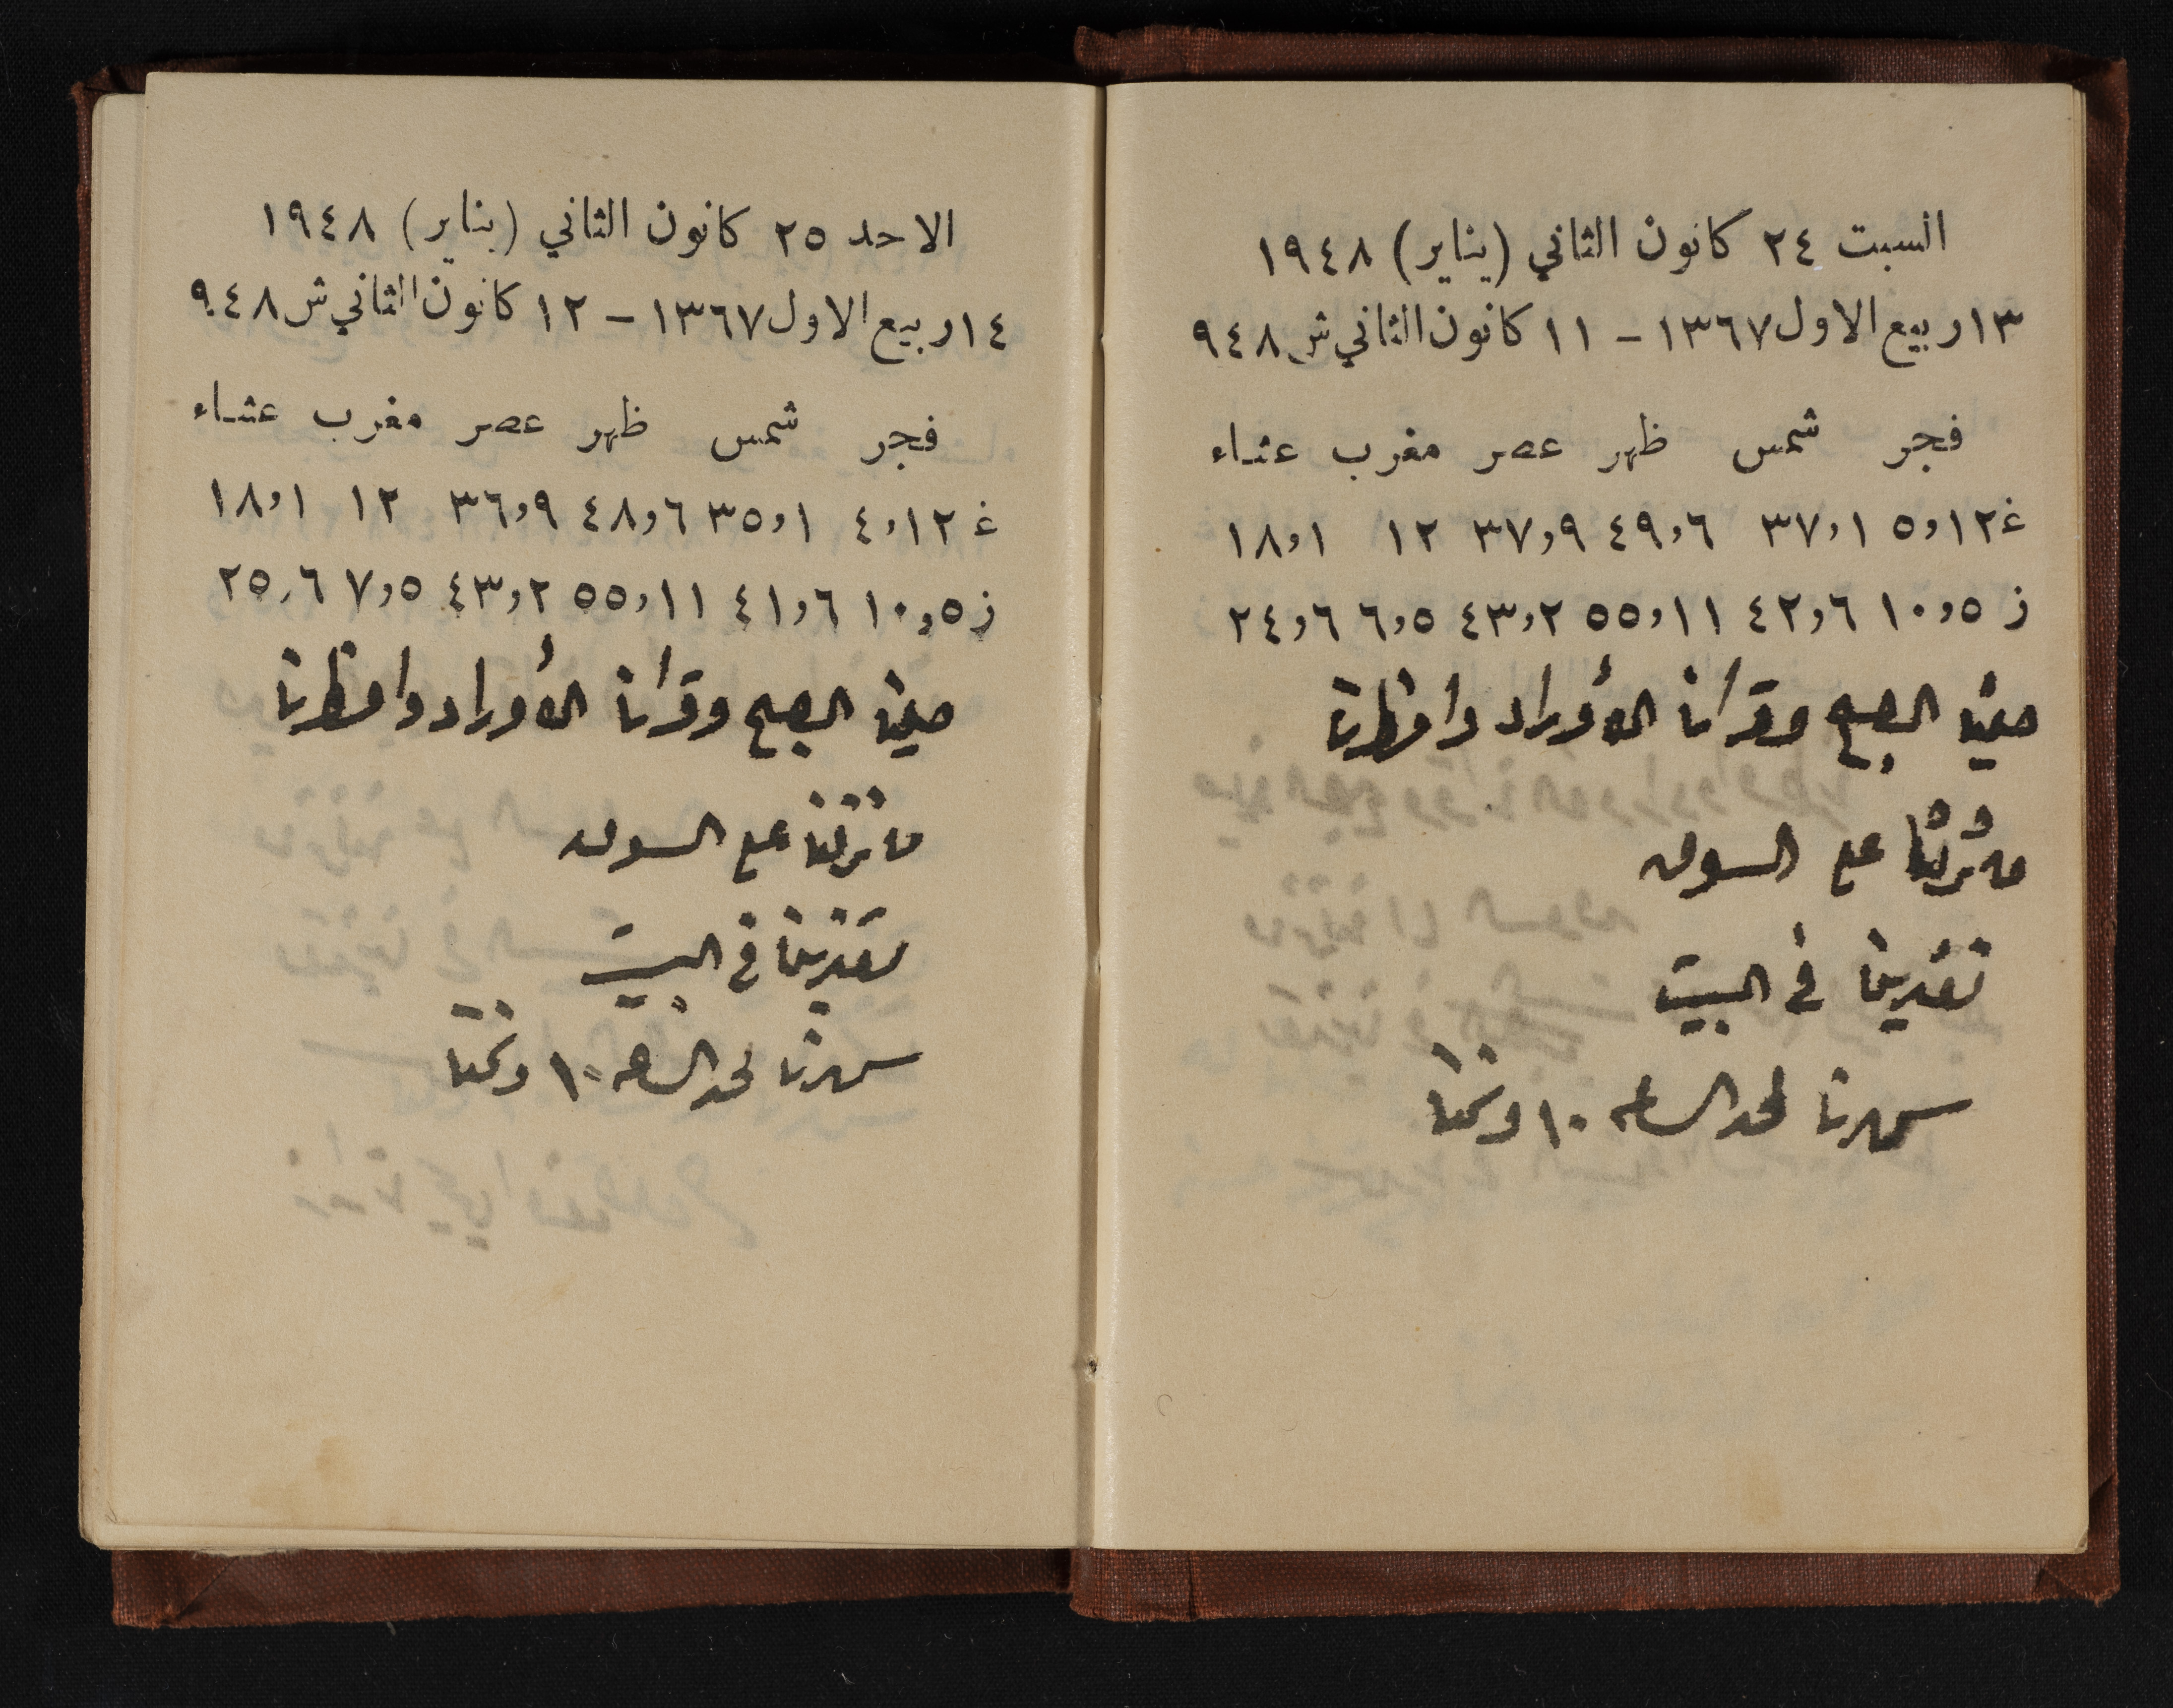 السبت ٢٤ كانون الثاني (يناير) ١٩٤٨
١٣ ربيع الاول ١٣٦٧ – ١١ كانون الثاني ش ٩٤٨
فجر شمس ظهر عصر مغرب عشاء
غ ٥,١٢ ٣٧,١ ٤٩,٦ ٣٧,٩ ١٢ ١٨,١
ز ١٠,٥ ٤٢,٦ ٥٥,١١ ٤٣,٢ ٦,٥ ٢٤,٦
صلينا الصبح وقرأنا الأوراد وافطرنا
ما نزلنا على السوق
تغدينا في البيت
سهرنا لحد الساعه ١٠ ونمنا
الاحد ٢٥ كانون الثاني (يناير) ١٩٤٨
١٤ ربيع الاول ١٣٦٧ – ١٢ كانون الثاني ش ٩٤٨
فجر شمس ظهر عصر مغرب عشاء
غ ٤,١٢ ٣٥,١ ٤٨,٦ ٣٦,٩ ١٢ ١٨,١
ز ١٠,٥ ٤١,٦ ٥٥,١١ ٤٣,٢ ٧,٥ ٢٥,٦
صلينا الصبح وقرأنا الأوراد وافطرنا
ما نزلنا على السوق
تغدينا في البيت
سهرنا لحد الساعه ١٠ ونمنا